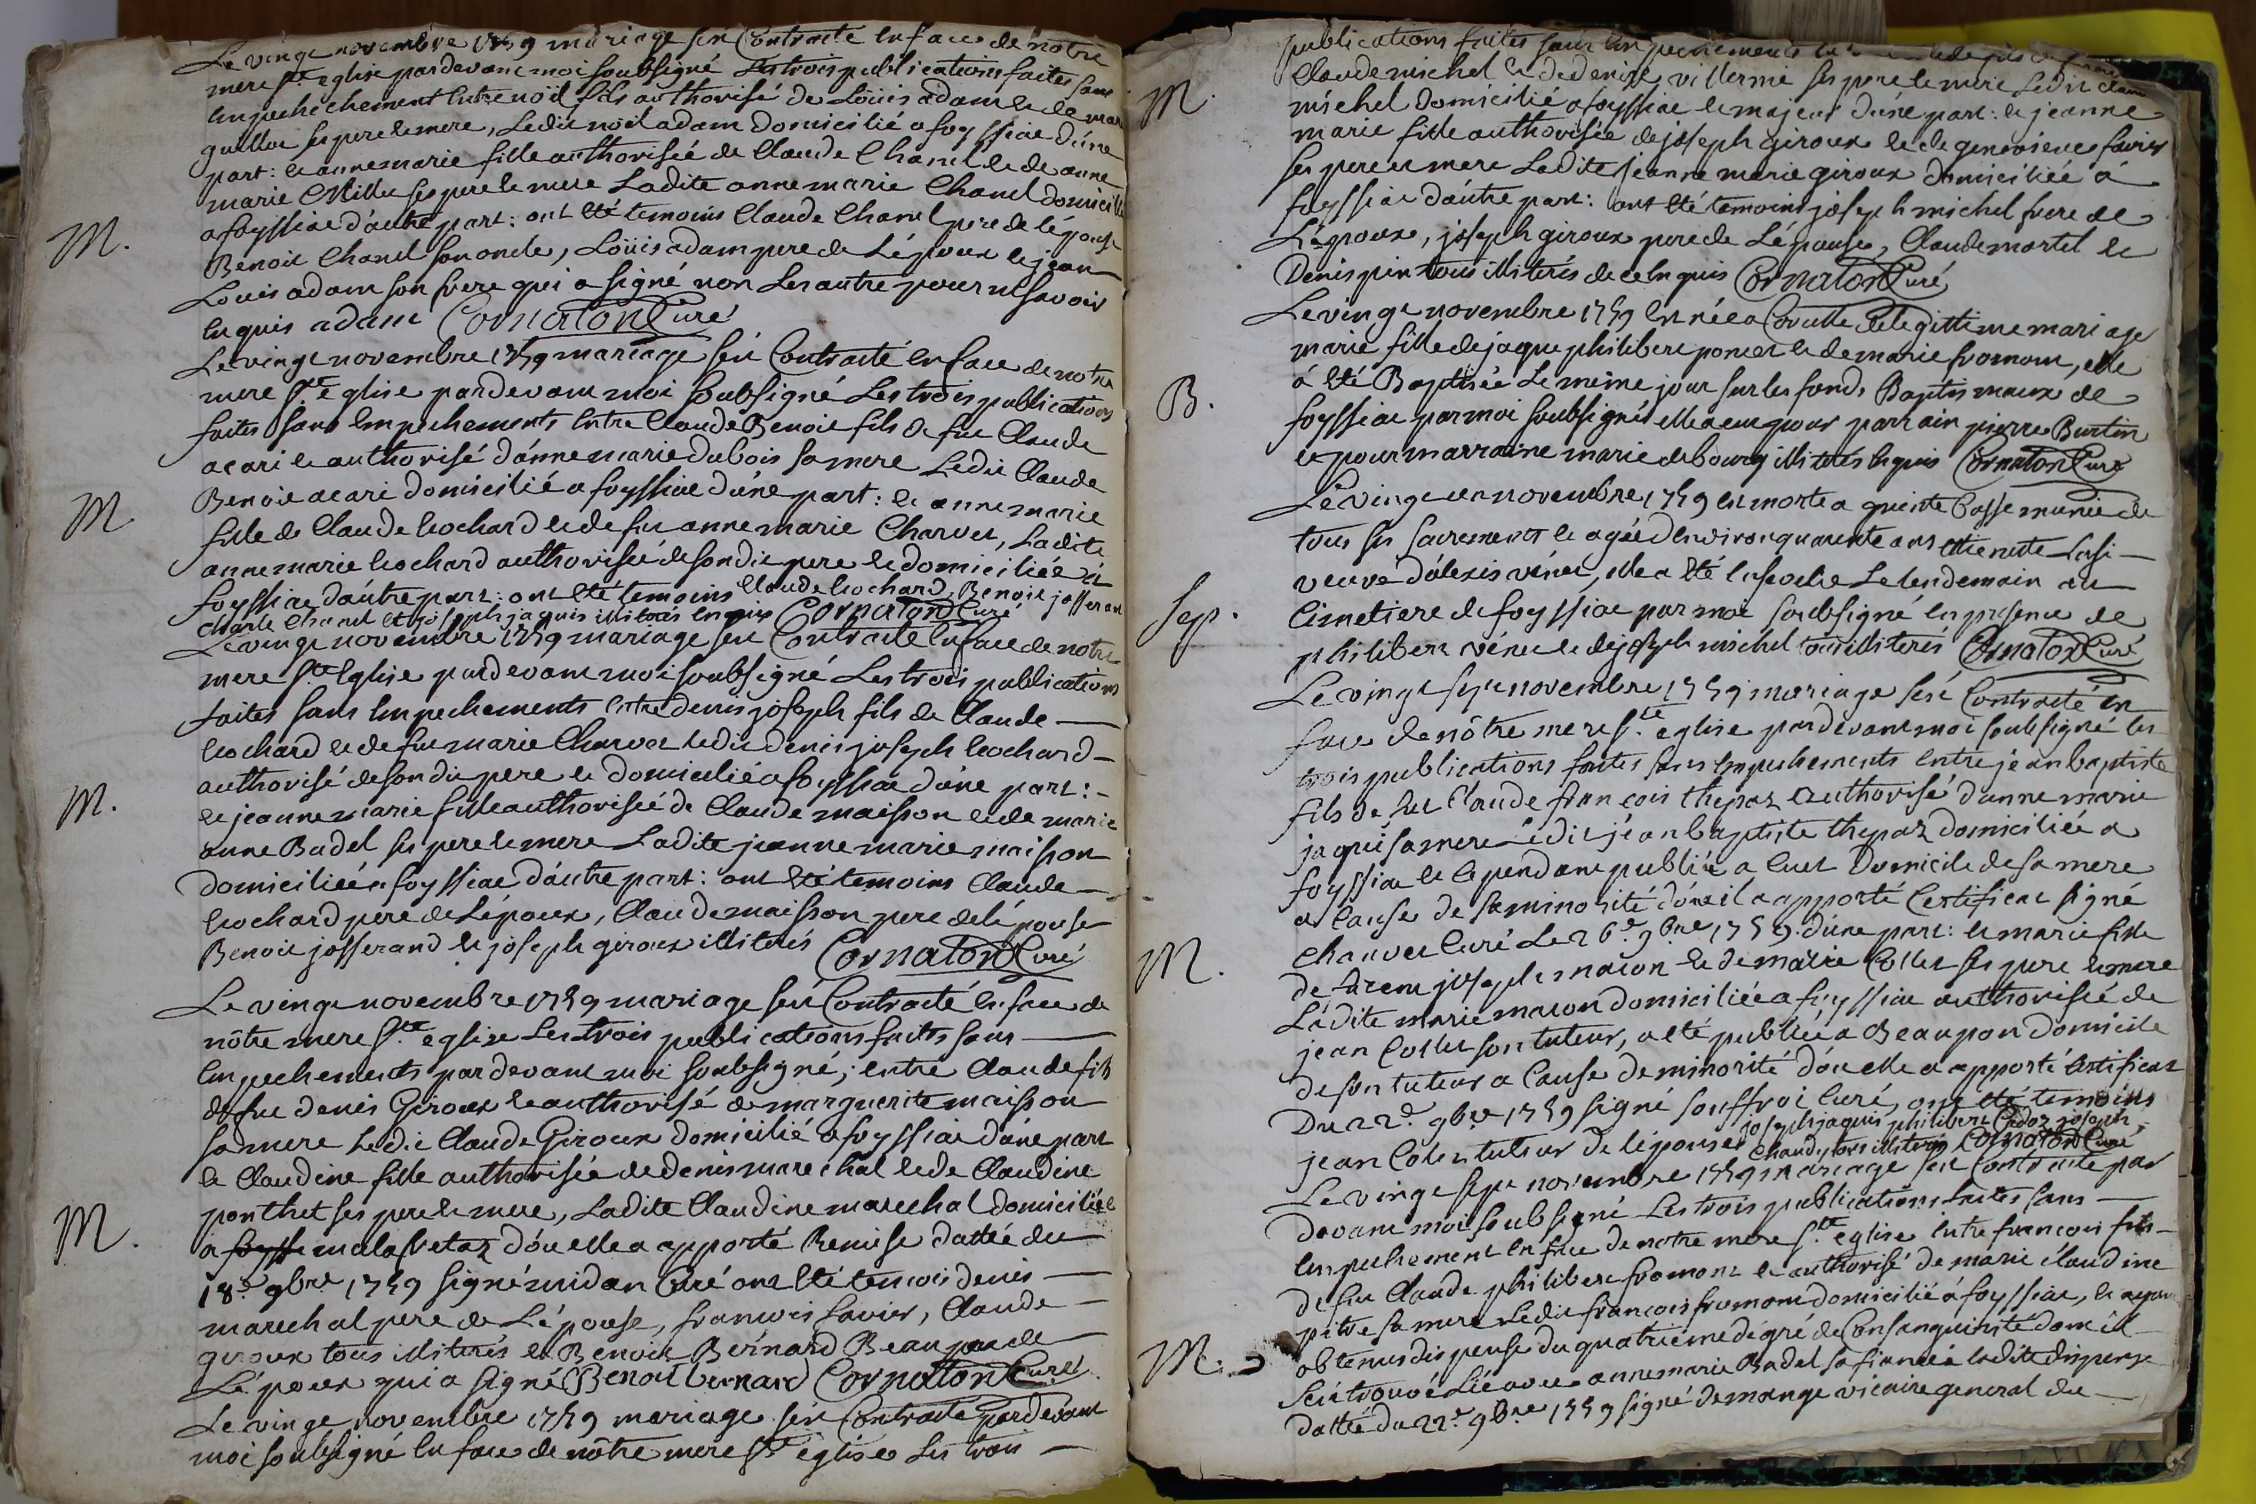 Le vingt novembre 1759 mariage s'en Contracté en face de nôtre
mere Ste eglise pardevant moi soubsigné Les trois publications faites sans
empechement entre noël fils authorisé de Loüis adam et de
guillot ses pere et mere, Ledit noël adam domicilié a foyssiac d'une
part: et anne marie fille authorisée de Claude Chanel et de anne
marie Millet ses pere et mere Ladite anne marie Chanel domicilié
M.
a foyssiac d'autre part: ont été temoins Claude Chanel pere de l'épouse
Benoit Chanel son oncle, Loüis adam pere de L'époux et jean
Louis adam son frere qui a signé non Les autre pour ne savoir
enquis adam Cornaton Curé
Le vingt novembre 1759 mariage s'en Contracté en face de notre
mere Ste Eglise pardevant moi soubsigné Les trois publications
faites sans empechements entre Claude Benoit fils de fue Claude
acari et authorisé d'anne marie dubois sa mere Ledit Claude
Benoit acari domicilié a foyssiac d'une part: et anne marie
M.
fille de Claude Cochard et de fue anne marie Charvet, Ladite
anne marie Cochard authorisée de son dit pere et domiciliée à
foyssiac d'autre part: ont été temoins Claude Cochard, Benoit josserand
Charle Chanel et joseph jaquis illiterés enquis Cornaton Curé
Le vingt novembre 1759 mariage s'en Contracté en face de notre
mere Ste Eglise pardevant moi soubsigné Les trois publications
faites sans empechements entre denis joseph fils de Claude
Cochard et de fue marie Charvet ledit denis joseph Cochard
authorisé de son dit pere et domicilié a foyssiac d'une part:
M.
et jeanne marie fille authorisée de Claude maisson et de marie
anne Badel ses pere et mere Ladite jeanne marie maisson
domiciliée a foyssiac d'autre part: ont été temoins Claude
Cochard pere de L'époux, Claude maisson pere de l'épouse
Benoit josserand et joseph giroux illiterés Cornaton Curé
Le vingt novembre 1759 mariage s'en Contracté en face de
nôtre mere Ste eglise Les trois publications faites sans
empechements pardevant moi soubsigné, entre Claude fils
de fue denis Giroux et authorisé de marguerite maisson
sa mere Ledit Claude Giroux domicilié a foyssiac d'une part
et Claudine fille authorisée de denis marechal et de Claudine
ponthet ses pere et mere, Ladite Claudine marechal domiciliée
M.
a foyssi malafretaz d'ou elle a apporté Remise dattée du
18e 9bre 1759 signé midan Curé ont été temois denis
marechal pere de L'épouse, francois favier, Claude
giroux tous illiterés et Benoit Bernard Beaupere de
L'époux qui a signé Benoit bernard Cornaton Curé
Le vingt novembre 1759 mariage s'en Contracté pardevant
moi soubsigné en face de nôtre mere Ste eglise Les trois
publications faites sans empechements
Claude michel et de denise villerme ses pere et mere Ledit Claude
M.
michel domicilié a foyssiac et majeur d'une part: et jeanne
marie fille authorisée de joseph giroux et de genevieve favier
ses pere et mere Ladite jeanne marie giroux domiciliée à
foyssiac d'autre part: ont été temoins joseph michel frere de
L'époux, joseph giroux pere de L'épouse, Claude martel et
Denis pin tous illiterés de ce enquis Cornaton Curé
Le vingt novembre 1759 en née a Corcelle de legittime mariage
marie fille de jaque philibert poncet et de marie fromont, elle
B.
à été Baptisée Le même jour sur les fonds Baptismaux de
foyssiac par moi soubsigné elle a eu pour parrain pierre Burtin
et pour marraine marie debourg illiterés enquis Cornaton Curé
Le vingt un novembre 1759 en morte a quinte basse munie de
tous ses sacrements et agée d'environ quarante ans etiennette
veuve d'alexis vénet, elle a été Ensevelie Le lendemain au
Sep.
Cimetiere de foyssiac par moi soubsigné en presence de
philibert vénet et de joseph michel tous illiterés Cornaton Curé
Le vingt sept novembre 1759 mariage s'en Contracté en
face de nôtre mere Ste eglise pardevant moi soubsigné les
trois publications faites sans empechements entre jean baptiste
fils de fut Claude françois thepaz authorisé d'anne marie
jaquis sa mere Ledit jean baptiste thepaz domiciliée a
foyssiac et cependant publiée a Cuet domicile de sa mere
a Cause de sa minorité d'où il a apporté Certificat signé
chanvet Curé Le 26e 9bre 1759. d'une part: et marie fille
M.
de fue joseph macon et de marie Collet ses pere et mere
Ladite marie macon domiciliée a foyssiac authorisée de
jean Collet son tuteur, a été publiée a Beaupon domicile
de son tuteur a Cause de minorité d'où elle a apporté Certificat
Du 22e 9bre 1759 signé souffroi Curé, ont été temoins
jean Colet tuteur de l'épouse, joseph jaquis philibert Cadoz joseph
Chaudy tous illiterés Cornaton Curé
Le vingt sept novembre 1759 mariage s'en Contracté par
Devant moi soubsigné Les trois publications faites sans
empechement en face de notre mere Ste eglise entre francois fils
de fue Claude philibert fromont et authorisé de marie Claudine
pitre sa mere Ledit francois fromont domicilié a foyssiac, et ayant
M.
obtenus dispense du quatrieme dégré de Consanguinité dont il
s'en trouvé Lié avec anne marie Badel sa fiancée ladite dispense
dattée du 22e 9bre 1759 signé demange vicaire general du